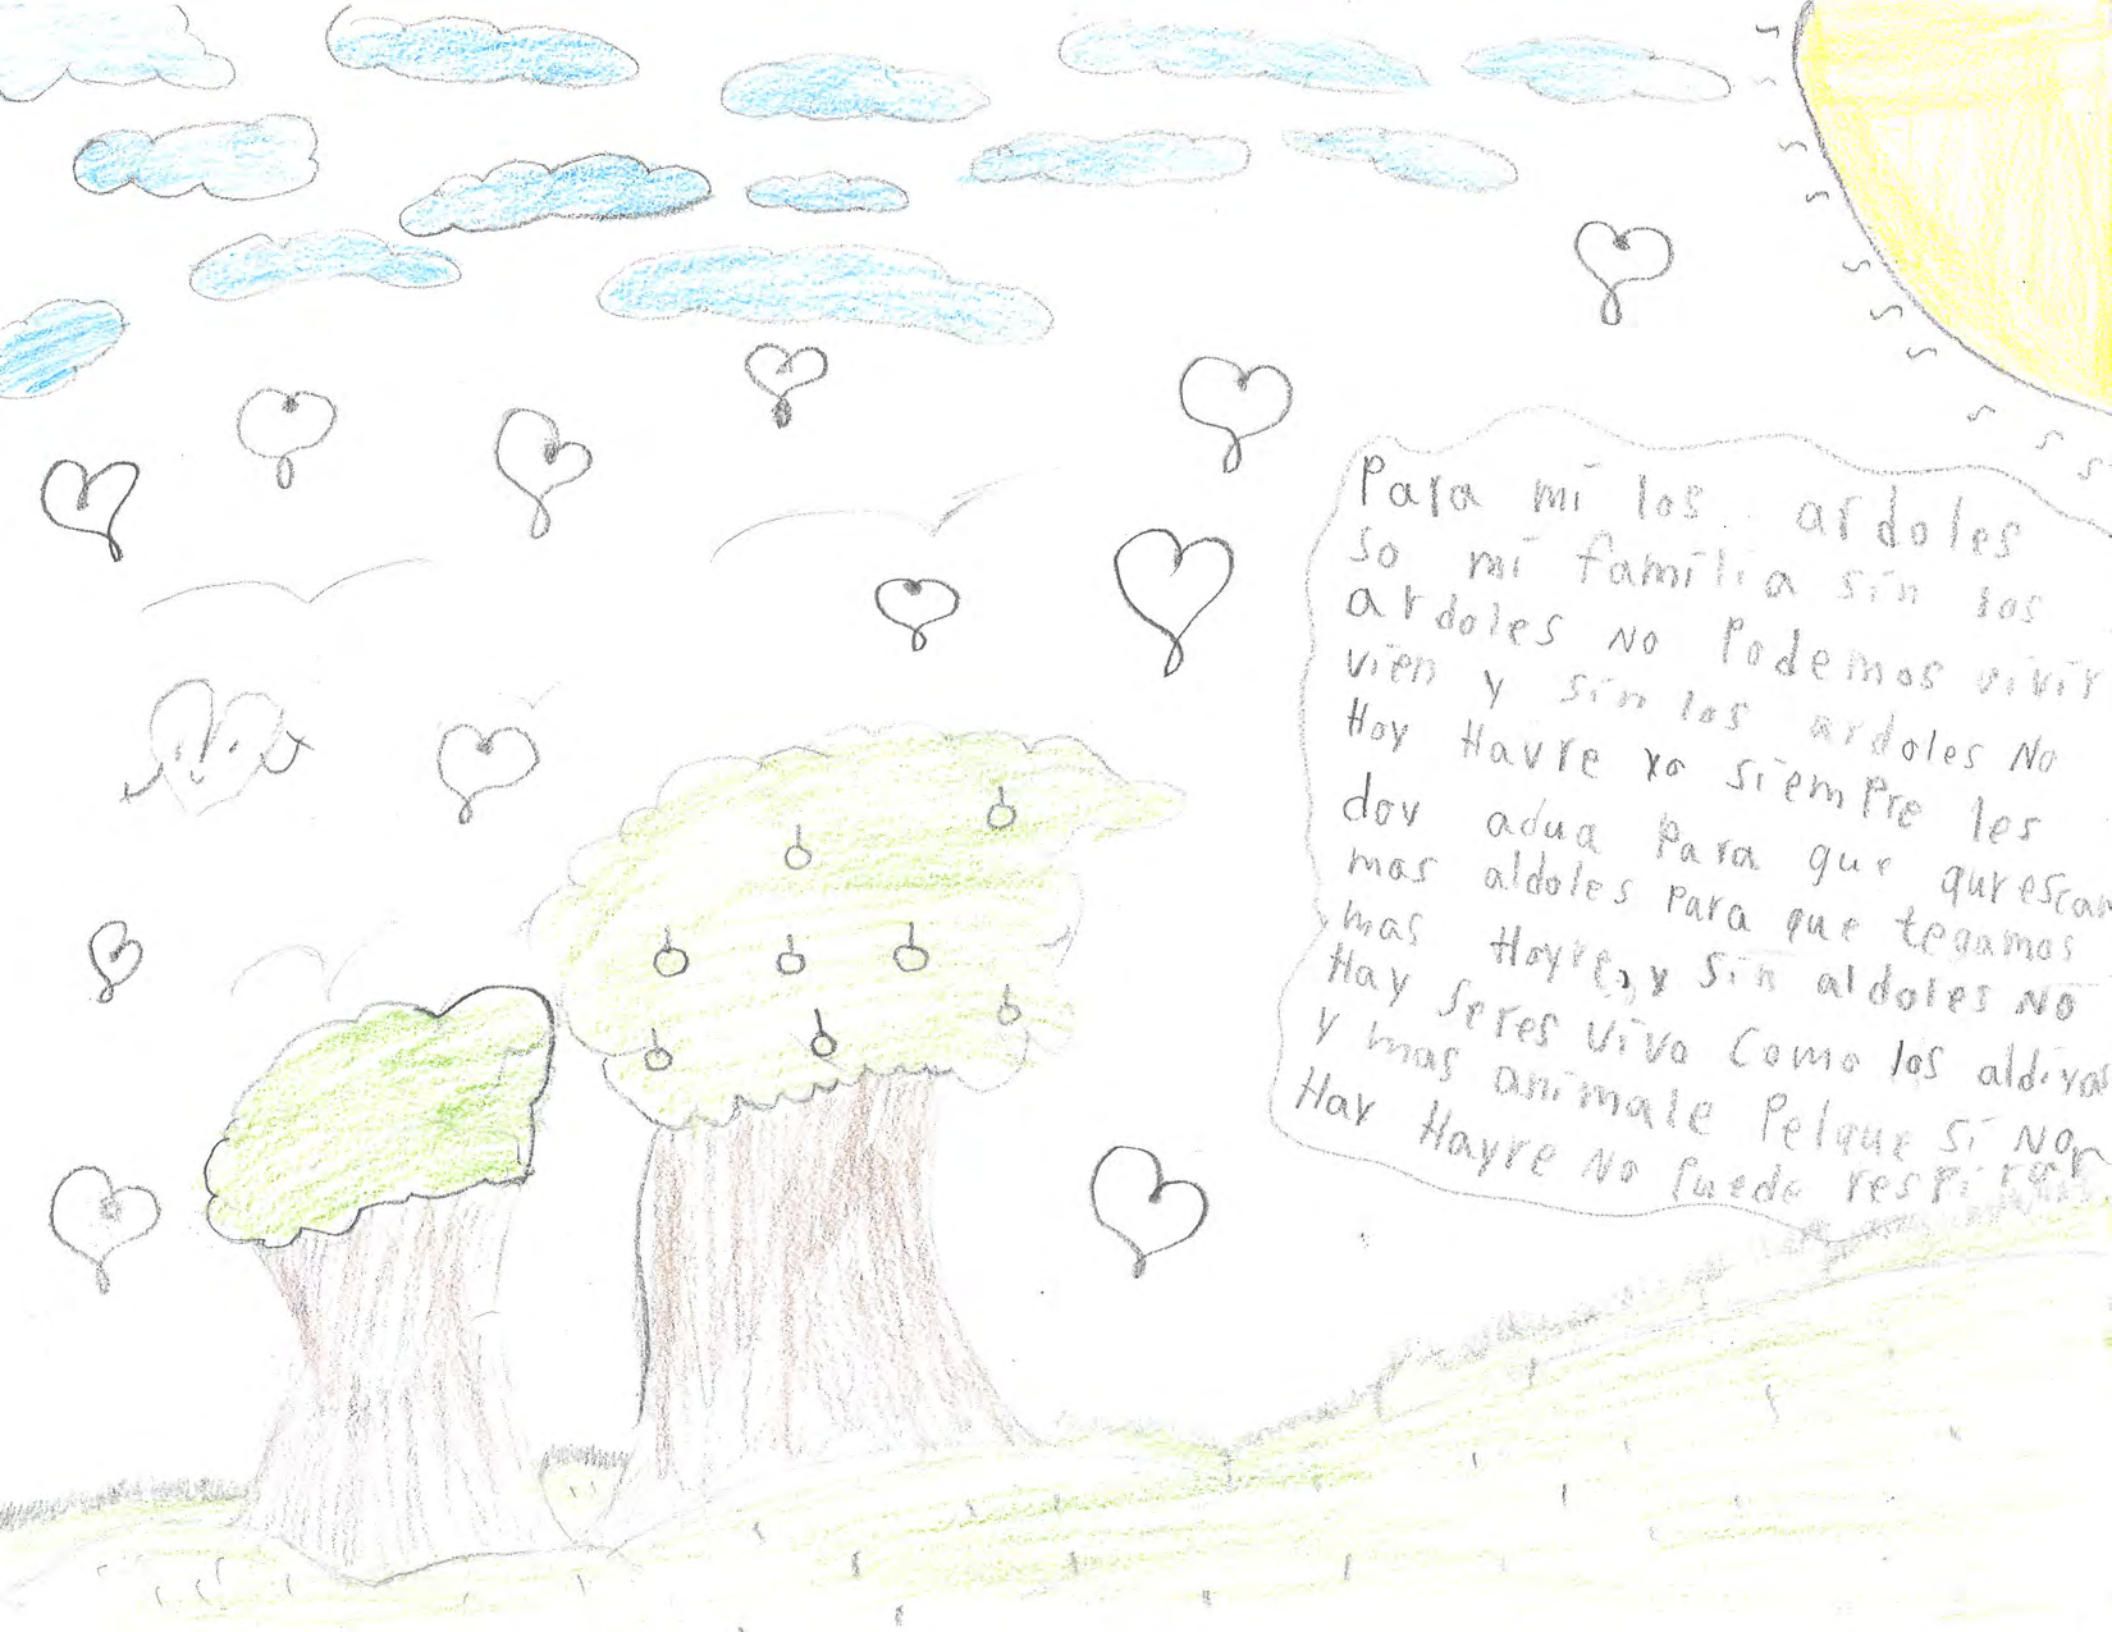 Para mi los ardoles
so mi familia sin los
ardoles No Podemos vivir
vien y sin los ardoles No
Hoy Havre yo siempre les
doy adua Para que qurescan
mas aldoles Para que tegamos
mas Hayre, y sin aldoles No
Hay seres vivo Como los aldivas
y mas animale Pelque si No
Hay Hayre No Puede respirar